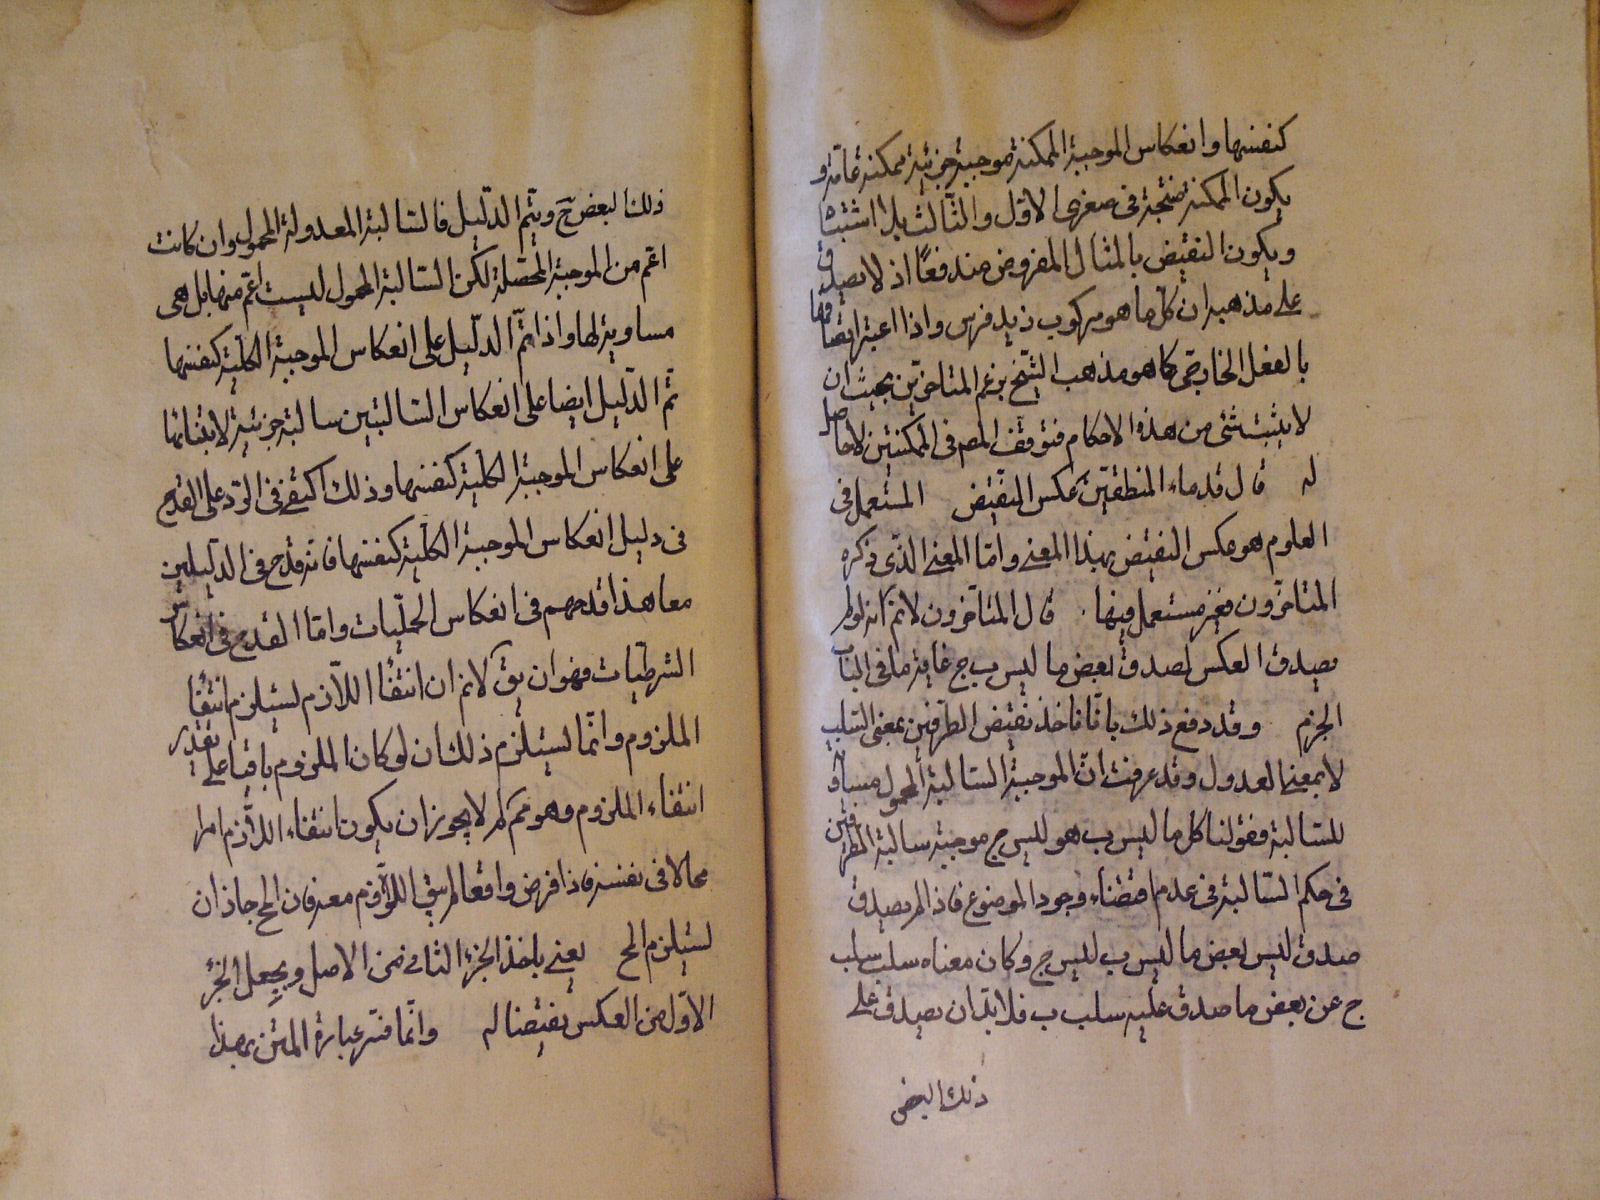 كنفسها وانعكاس الموجبة الممكنة موجبة جزئية ممكنة عامة و
يكون الممكنة منتجة فى صغرى الاول والثالث بلا اشتباه
ويكون النقيض بالمثال المفروض مندفعًا اذ لا يصدق
على مذهبه ان كل ما هو مركوب زيد فرس واذا اعتبر اتصافها
بالفعل الخارجى كما هو مذهب الشيخ بزعم المتاخرين بحيث ان
لا يثبت شئ من هذه الاحكام فتوقف المص فى الممكنتين لا حاصل
له قال قدماء المنطقيين عكس النقيض المستعمل فى
العلوم هو عكس النقيض بهذا المعنى واما المعنى الذى ذكره
المتاخرون فغير مستعمل فيها قال المتاخرون لانم انه لو لم
يصدق العكس لصدق بعض ما ليس ب ج غاية ما فى الباب
الجزم وقد دفع ذلك بانا ناخذ نقيض الطرفين بمعنى السلب
لا بمعنى العدول وقد عرفت ان الموجبة السالبة المحمول مساوية
للسالبة فقولنا كل ما ليس ب هو ليس ج موجبة سالبة الطرفين
فى حكم السالبة فى عدم اقتضاء وجود الموضوع فاذا لم يصدق
صدق ليس بعض ما ليس ب ليس ج وكان معناه سلب سلب
ج عن بعض ما صدق عليه سلب ب فلا بد ان يصدق على
ذلك البعض
ذلك البعض ج ويتم الدليل فالسالبة المعدولة المحمول وان كانت
اعم من الموجبة المحصلة لكن السالبة المحمول ليست اعم منها بل هى
مساوية لها واذا تم الدليل على انعكاس الموجبة الكلية كنفسها
تم الدليل ايضا على انعكاس السالبتين سالبة جزئية لابتنائها
على انعكاس الموجبة الكلية كنفسها وذلك اكتفى فى الرد على القدح
فى دليل انعكاس الموجبة الكلية كنفسها فانه قدح فى الدليلين
معا هذا قدحهم فى انعكاس الحمليات واما القدح فى انعكاس
الشرطيات فهو ان يق لانم ان انتفاء اللازم يستلزم انتفاء
الملزوم وانما يستلزم ذلك ان لو كان الملزوم باقيا على تقدير
انتفاء الملزوم وهو مم لم لا يجوز ان يكون انتفاء اللازم امرا
محالا فى نفسه فاذا فرض واقعا لم يبق اللزوم معه فان المح جاز ان
يستلزم المح يعنى ياخذ الجزء الثانى من الاصل ويجعل الجزء
الاول من العكس نقيضا له وانما فسر عبارة المتن بهذا